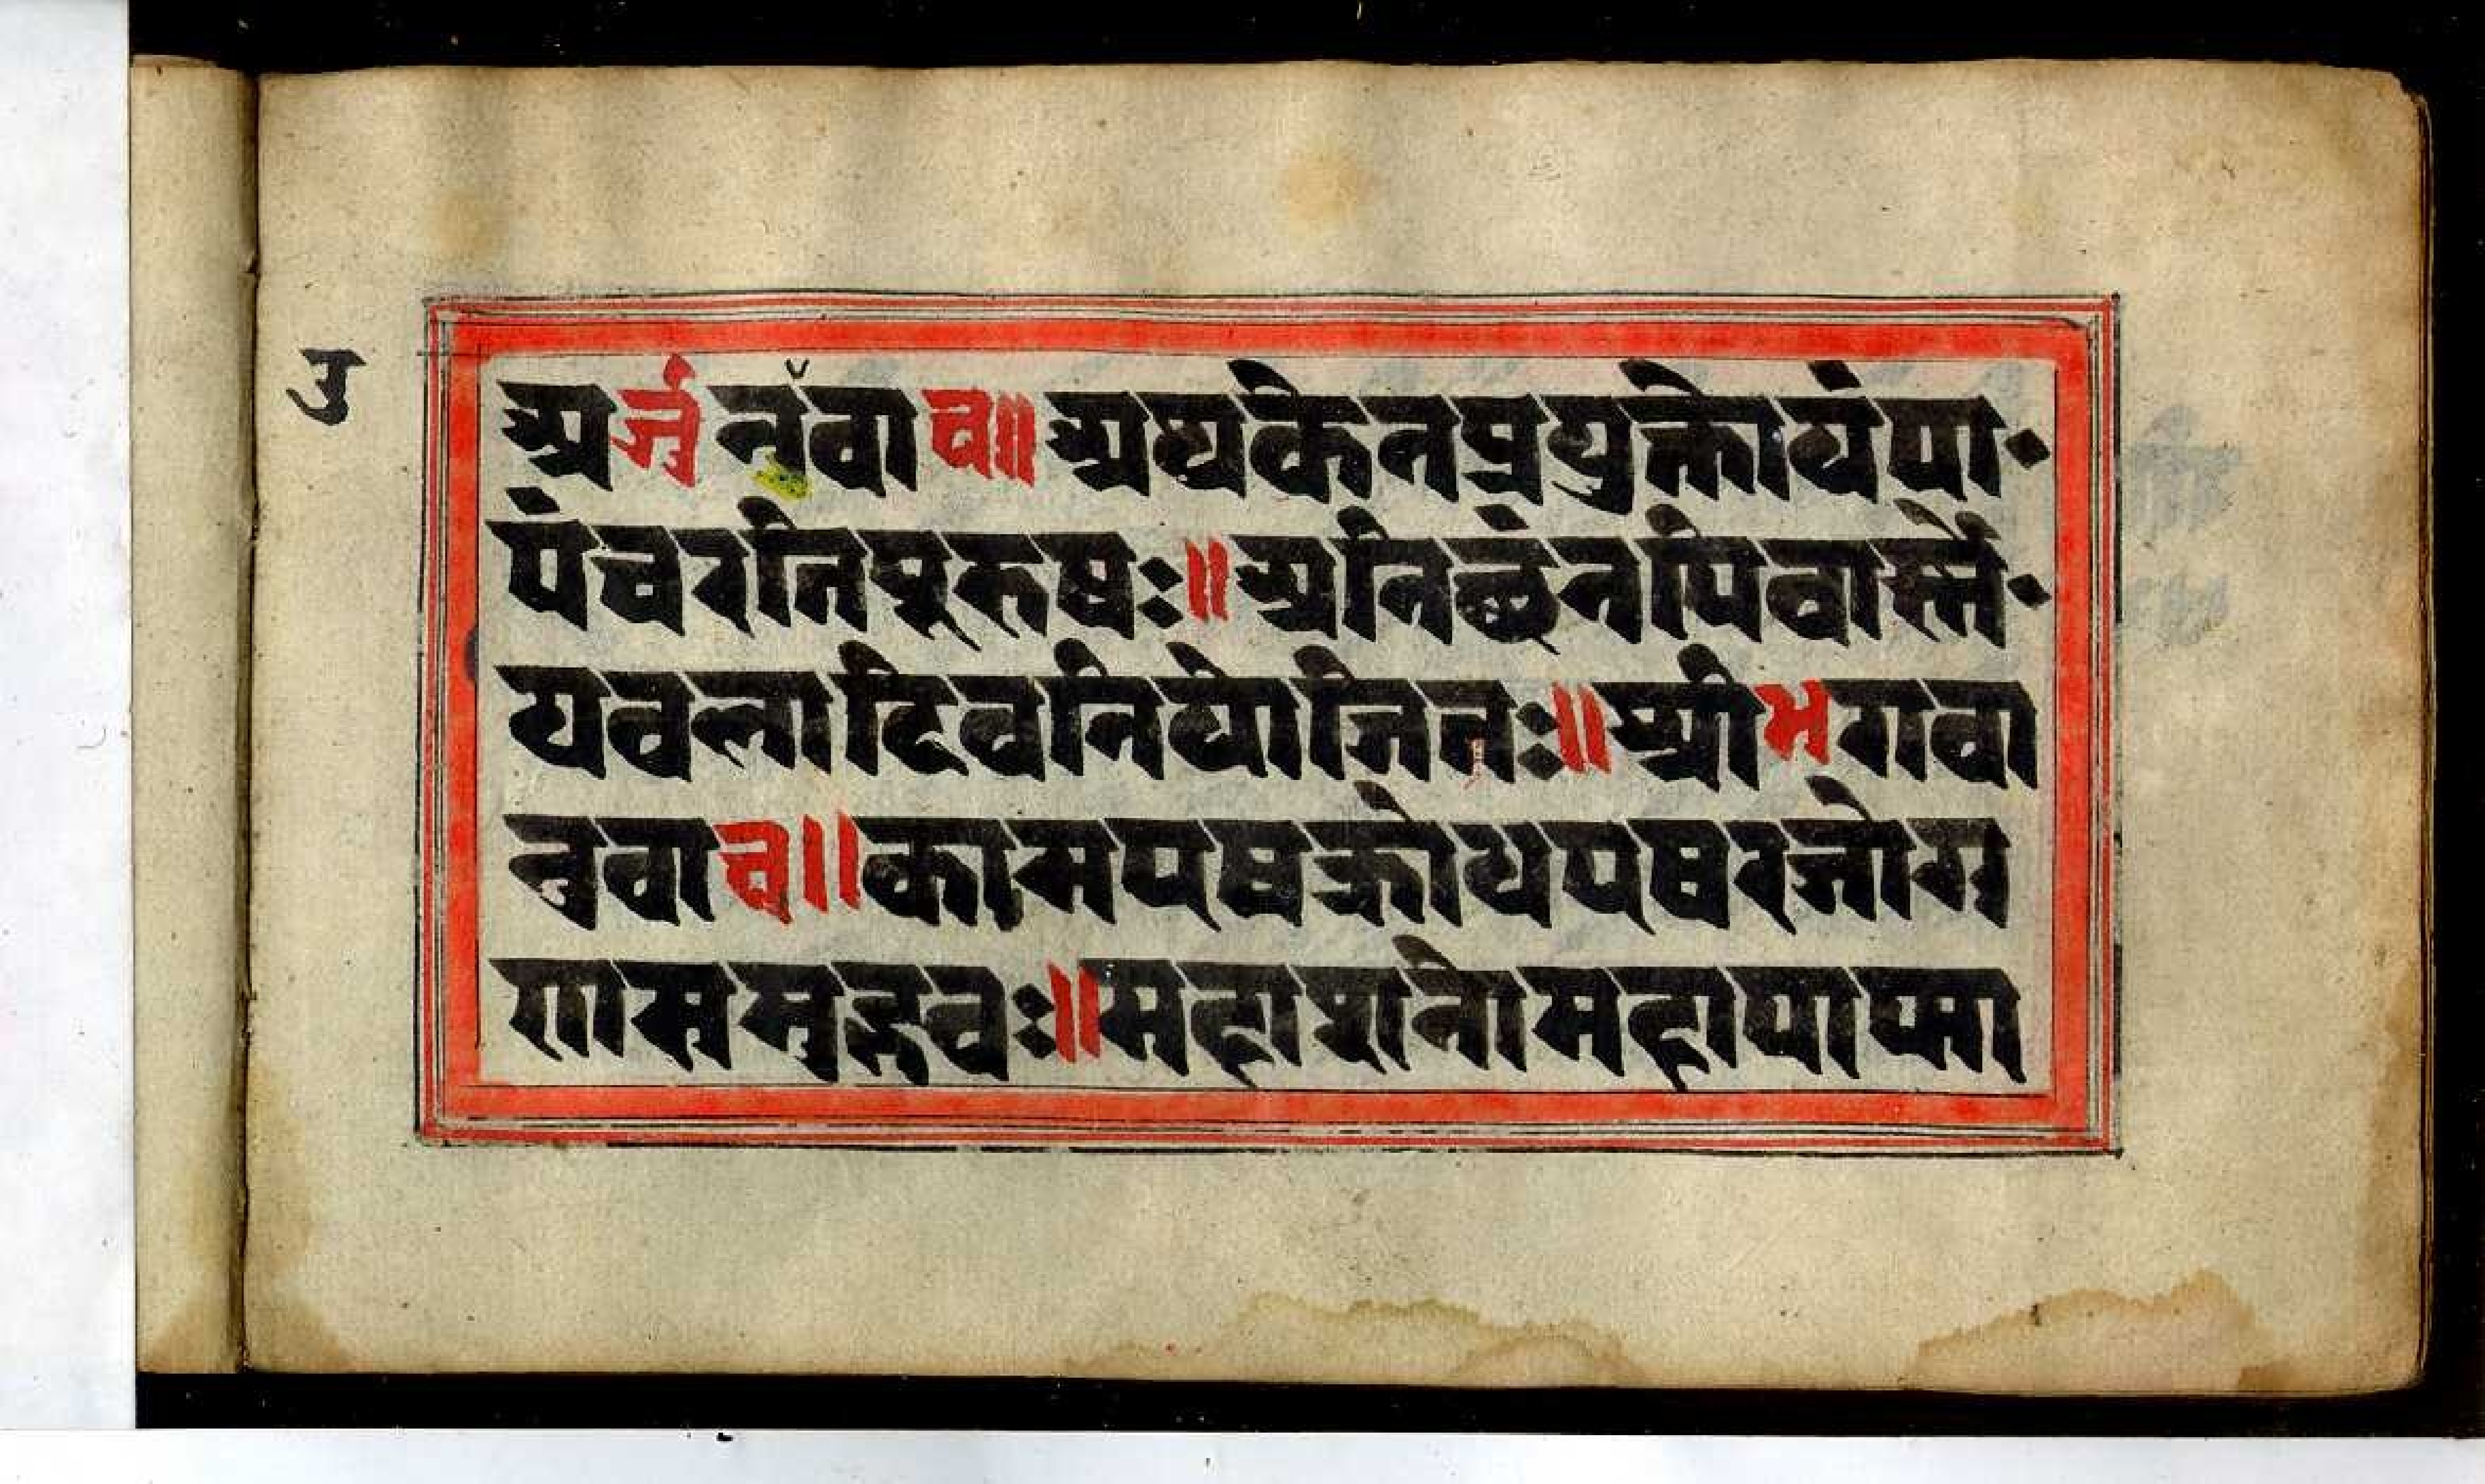 उ
अर्जुनवाच॥ अथकेनप्रयुक्तोयंपा·
पंचरतिपूरुषः॥ अनिछंनपिवार्स्ने·
यवलादिवनियोजितः॥ श्रीभगवा
नुवाच॥ कामएषक्रोधएषरजोग
णासमुद्भवः॥ महाशनोमहापाप्मा